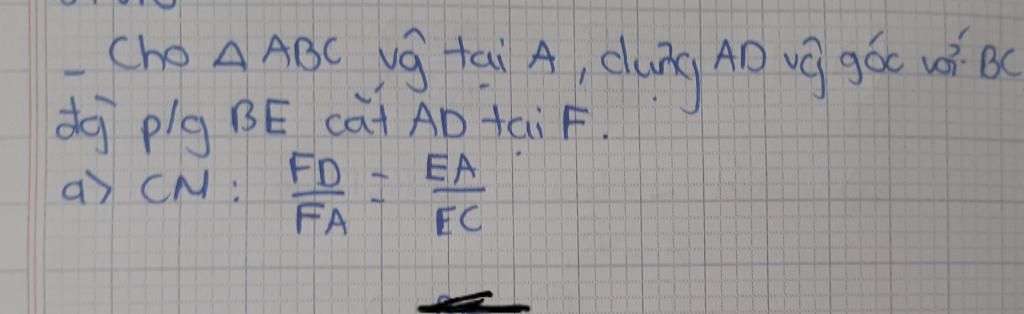 _ Cho △ ABC vĝ tại A, dựng AD vĝ góc với BC
đg̀ p/g BE cắt AD tại F.
a> CM: FD/FA = EA/EC